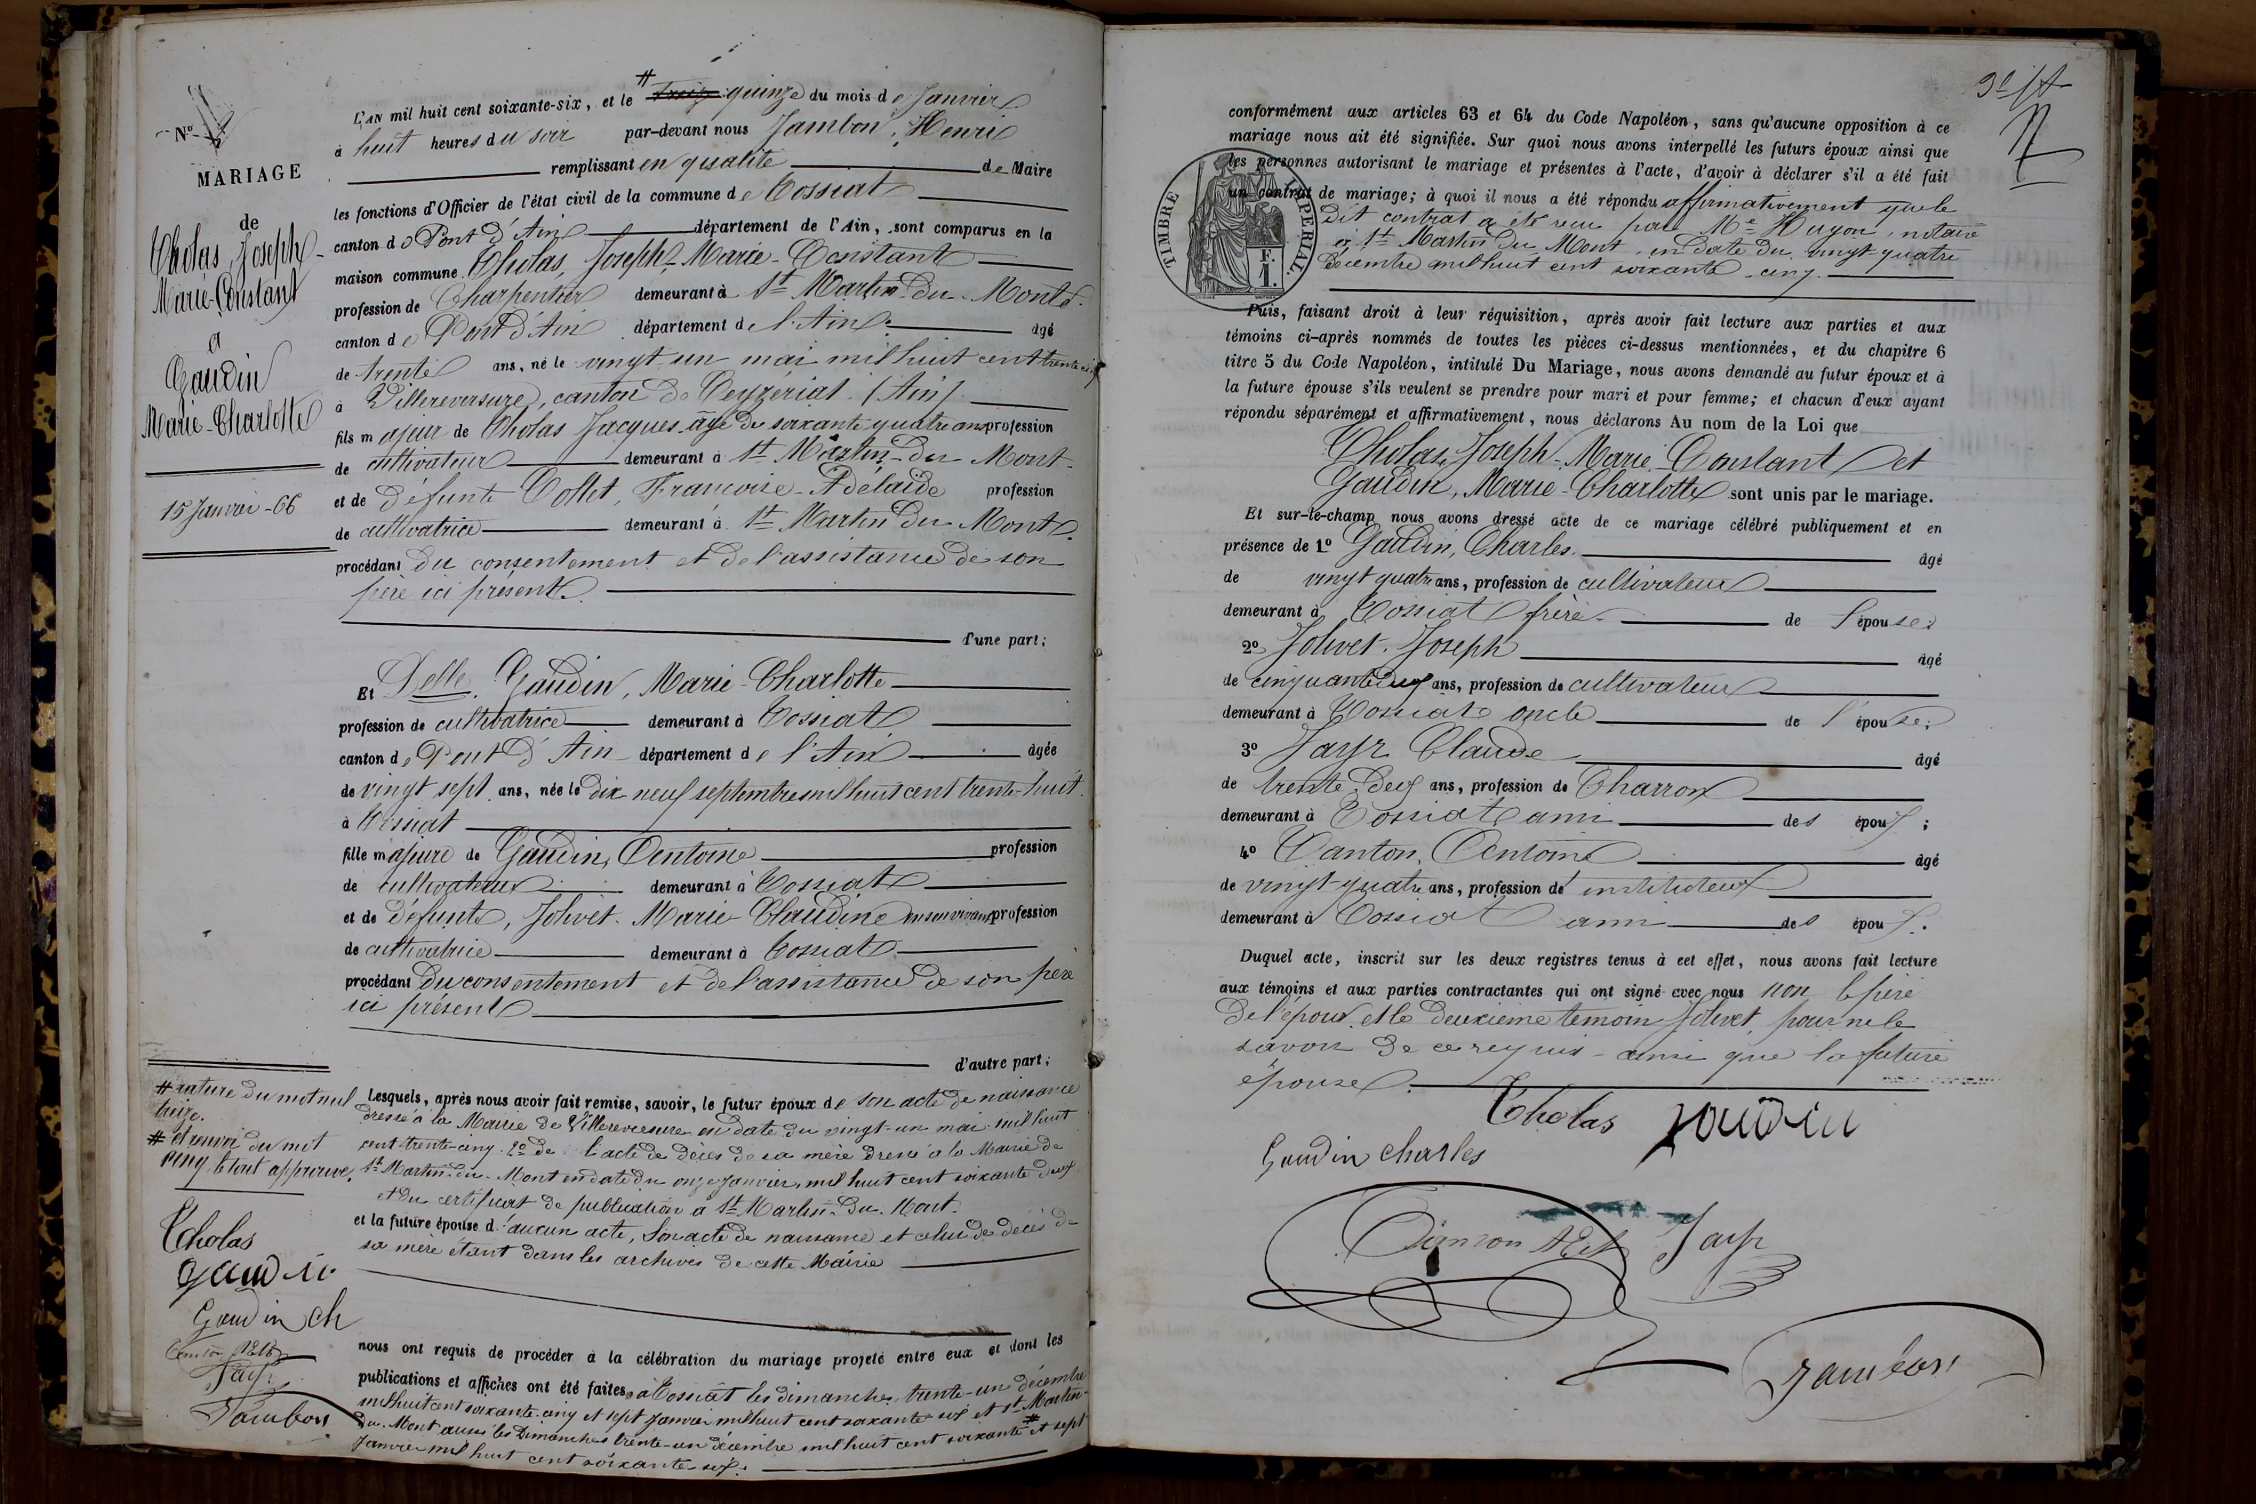 N.º 2
MARIAGE
de
Cholas, Joseph-
Marie-Constant
et
Gaudin
Marie-Charlotte
15 Janvier - 66
# L'AN mil huit cent soixante-six, et le treize quinze du mois de Janvier
à huit heures du soir par-devant nous Jambon, Henri
remplissant en qualité de Maire
les fonctions d'Officier de l'état civil de la commune de Tossiat
canton de Pont d'Ain département de l'Ain, sont comparus en la
maison commune Cholas, Joseph-Marie-Constant
profession de Charpentier demeurant à St Martin-du-Mont
canton de Pont d'Ain département de l'Ain âgé
de trente ans, né le vingt-un mai mil huit cent trente cinq
à Villereversure, canton de Ceyzériat (Ain)
fils majeur de Cholas Jacques âgé de soixante quatre ans profession
de cultivateur demeurant à St Martin-du Mont-
et de défunte Collet, Françoise-Adélaïde profession
de cultivatrice demeurant à St Martin du Mont.
procédant du consentement et de l'assistance de son
père ici présent.
d'une part;
Et Delle Gaudin, Marie-Charlotte
profession de cultivatrice demeurant à Tossiat
canton de Pont d'Ain département de l'Ain âgée
de vingt sept ans, née le dix neuf septembre mil huit cent trente-huit
à Tossiat
fille majeure de Gaudin, Antoine profession
de cultivateur demeurant à Tossiat
et de défunte, Jolivet Marie Claudine en son vivant profession
de cultivatrice demeurant à Tossiat
procédant du consentement et de l'assistance de son père
ici présent
d'autre part;
Lesquels, après nous avoir fait remise, savoir, le futur époux de son acte de naissance
dressé à la Mairie de Villereversure en date du vingt-un mai mil huit
cent trente-cinq. 2º de l'acte de décès de sa mère dressé à la Mairie de
St Martin-du-Mont en date du onze Janvier, mil huit cent soixante deux
et du certificat de publication à St Martin-du-Mont.
et la future épouse d'aucun acte, son acte de naissance et celui de décès de
sa mère étant dans les archives de cette Mairie
nous ont requis de procéder à la célébration du mariage projeté entre eux et dont les
publications et affiches ont été faites à Tossiat les dimanches, trente-un décembre
mil huit cent soixante-cinq et sept Janvier mil huit cent soixante six et St Martin-
du-Mont aussi les Dimanches trente-un décembre mil huit cent soixante # et sept
Janvier mil huit cent soixante-six.
# rature du mot nul
treize.
# et renvoi du mot
cinq le tout approuvé.
Cholas
gaudin
Gaudin ch
Jayr
Jambon
TIMBRE IMPERIAL.
F.
1.
conformément aux articles 63 et 64 du Code Napoléon, sans qu'aucune opposition à ce
mariage nous ait été signifiée. Sur quoi nous avons interpellé les futurs époux ainsi que
les personnes autorisant le mariage et présentes à l'acte, d'avoir à déclarer s'il a été fait
un contrat de mariage; à quoi il nous a été répondu affirmativement que le
dit contrat a été reçu par Me Hugon, notaire
à St Martin du Mont, en date du vingt-quatre
décembre mil huit cent soixante-cinq.
Puis, faisant droit à leur réquisition, après avoir fait lecture aux parties et aux
témoins ci-après nommés de toutes les pièces ci-dessus mentionnées, et du chapitre 6
titre 5 du Code Napoléon, intitulé Du Mariage, nous avons demandé au futur époux et à
la future épouse s'ils veulent se prendre pour mari et pour femme; et chacun d'eux ayant
répondu séparément et affirmativement, nous déclarons Au nom de la Loi que
Cholas, Joseph-Marie-Constant et
Gaudin, Marie-Charlotte sont unis par le mariage.
Et sur-le-champ nous avons dressé acte de ce mariage célébré publiquement et en
présence de 1º Gaudin, Charles. âgé
de vingt quatre ans, profession de cultivateur
demeurant à Tossiat frère de l'épouse;
2º Jolivet. Joseph âgé
de cinquante deux ans, profession de cultivateur
demeurant à Tossiat oncle de l'épouse;
3º Jayr Claude âgé
de trente deux ans, profession de Charron
demeurant à Tossiat ami des époux;
4º Canton, Antoine âgé
de vingt-quatre ans, profession de instituteur
demeurant à Tossiat ami des époux.
Duquel acte, inscrit sur les deux registres tenus à cet effet, nous avons fait lecture
aux témoins et aux parties contractantes qui ont signé avec nous non le père
de l'époux et le deuxième témoin Jolivet, pour ne le
savoir de ce requis - ainsi que la future
épouse.
Cholas gaudin
Gaudin charles
Jayr
Jambon